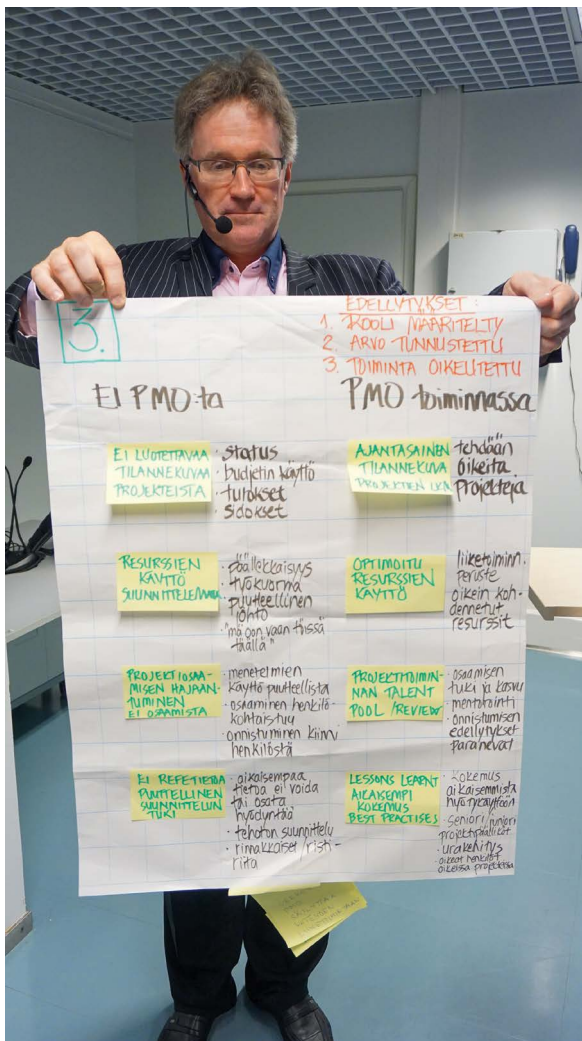 3.
EDELLYTYKSET:
1. ROOLI MÄÄRITELTY
2. ARVO TUNNUSTETTU
3. TOIMINTA OIKEUTETTU
EI PMO:ta
PMO toiminnassa
EI LUOTETTAVAA
TILANNEKUVAA
PROJEKTEISTA
• status
• budjetin käyttö
• tulokset
• sidokset
AJANTASAINEN
TILANNEKUVA
PROJEKTIEN
tehdään
oikeita
projekteja
RESURSSIEN
KÄYTTÖ
• päällekkäisyys
• työkuorma
• puutteellinen
johto
• "mä oon vaan töissä
täällä"
OPTIMOITU
RESURSSIEN
KÄYTTÖ
liiketoiminn.
peruste
oikein koh-
dennetut
resurssit
PROJEKTIOSAA-
MISEN HAJAAN-
TUMINEN
EI OSAAMISTA
• menetelmien
käyttö puutteellista
• osaaminen henkilö-
kohtaistuu
• onnistuminen kiinni
henkilöstä
PROJEKTITOIMIN-
NAN TALENT
POOL / REVIEW
• osaamisen
tuki ja kasvu
• mentorointi
• onnistumisen
edellytykset
paranevat
EI REFETIETOA
PUUTTELLINEN
SUUNNITTELUN
TUKI
• aikaisempaa
tietoa ei voida
tai osata
hyödyntää
• tehoton suunnittelu
• rinnakkaiset / risti-
riita
LESSONS LEARNT
AIKAISEMPI
KOKEMUS
BEST PRACTISES
• kokemus
aikaisemmista
hyötykäyttöön
• seniori / juniori
projektipäälliköt
• urakehitys
• oikeat henkilöt
oikeissa projekteissa